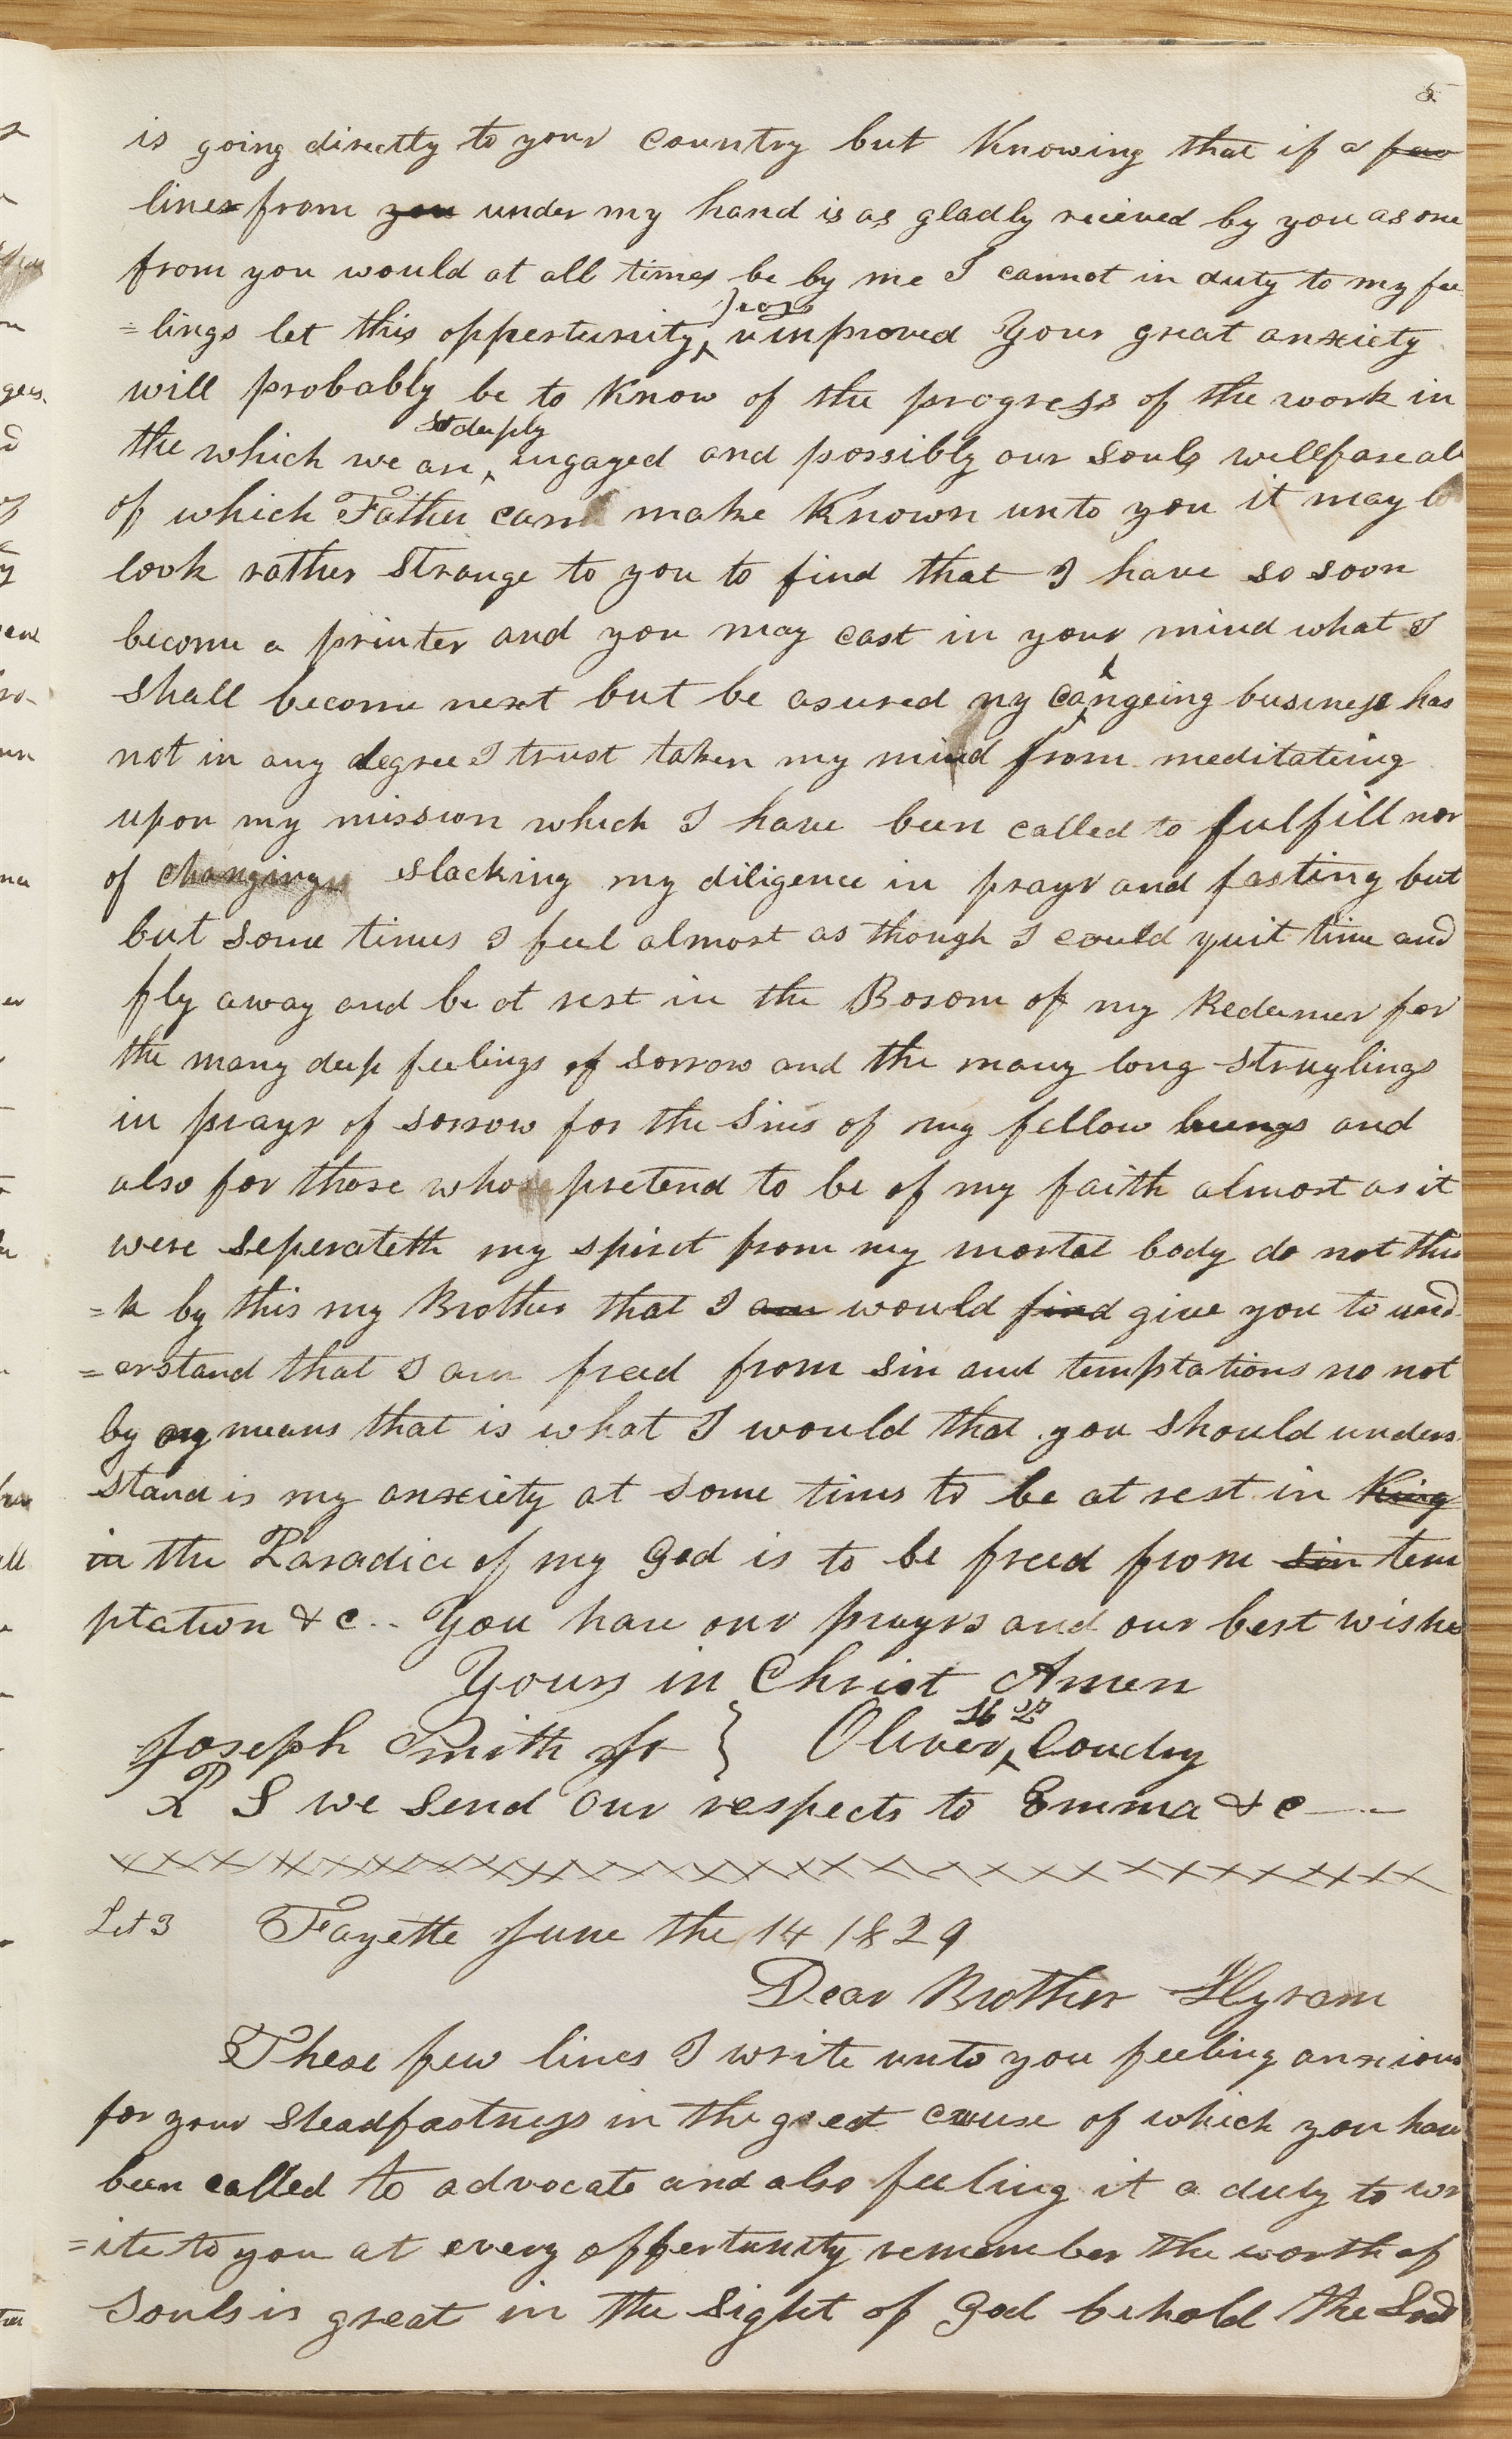 5
is going directly to your country but Knowing that if a few
lines from you under my hand is as gladly recieved by you as one
from you would at all times be by me I cannot in duty to my fee
=lings let this oppertunity pass unimproved Your great anxiety
will probably be to Know of the progress of the work in
the which we are so deeply engaged and possibly our souls wellfare all
of which Father can make Known unto you it may b
look rather strange to you to find that I have so soon
become a printer and you may cast in your mind what I
shall become next but be asured my changeing business has
not in any degree I trust taken my mind from meditateing
upon my mission which I have been called to fulfill nor
of changing slacking my diligence in prayr and fasting but
but some times I feel almost as though I could quit time and
fly away and be at rest in the Bosom of my Redeemer for
the many deep feelings of sorrow and the many long struglings
in prayr of sorrow for the Sins of my fellow beings and
also for those who pretend to be of my faith almost as it
were seperateth my spirit from my mortal body do not thin
=k by this my Brother that I am would find give you to und
=erstand that I am freed from sin and temptations no not
by any means that is what I would that you should unders
stand is my anxiety at some times to be at rest in King
in the Paradice of my God is to be freed from sin tem
ptation &c.. You have our prayrs and our best wishes
Yours in Christ Amen
Joseph Smith Jr } Oliver H P Coudry
P S we send our respects to Emma &c —
Let 3 Fayette June the 14 1829
Dear Brother Hyram
These few lines I write unto you feeling anxious
for your steadfastness in the great cause of which you have
been called to advocate and also feeling it a duty to wr
=ite to you at every oppertunity remember the worth of
souls is great in the sight of God behold the Lord